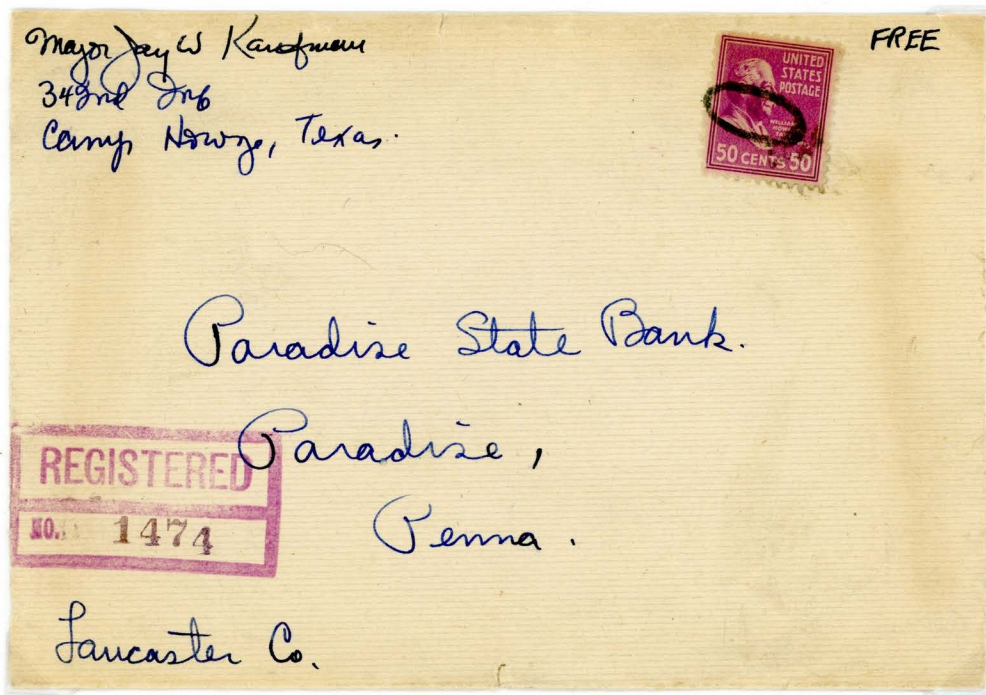 Major Jay W Kaufman
342nd Inf
Camp Howze, Texas.
FREE
UNITED
STATES
POSTAGE
WILLIAM
HOWARD
TAFT
50 CENTS 50
Paradise State Bank.
Paradise,
Penna.
REGISTERED
NO. 1474
Lancaster Co.